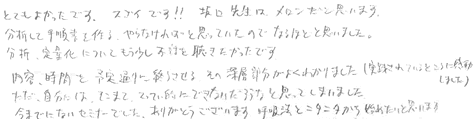 とてもよかったです。スゴイです!! 坂口先生は、メロンだと思います。
分析して手順書を作る、やらなければと思っていたのでなるほどと思いました。
分析、定量化についてもう少しお話を聴きたかったです
内容、時間を予定通りに終らせる その深層部分がよくわかりました(実践されているところに感動しました)
ただ、自分には、そこまで、ていねいにできないだろうなと思ってしまいました
今までにないセミナーでした、ありがとうございます 呼吸法とニタニタから始めたいと思います